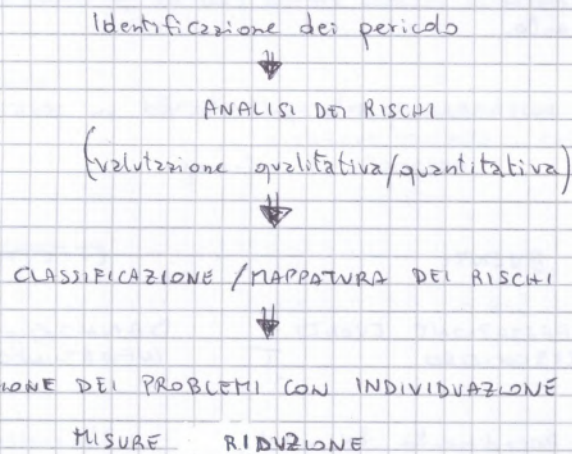 Identificazione dei pericolo
ANALISI DEI RISCHI
(valutazione qualitativa/quantitativa)
CLASSIFICAZIONE / MAPPATURA DEI RISCHI
IONE DEI PROBLEMI CON INDIVIDUAZIONE
MISURE RIDUZIONE